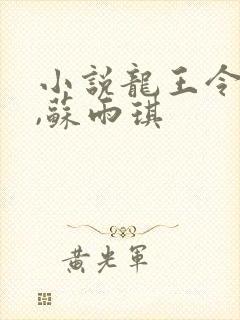 小説龍王令
,蘇雨琪
黄光軍